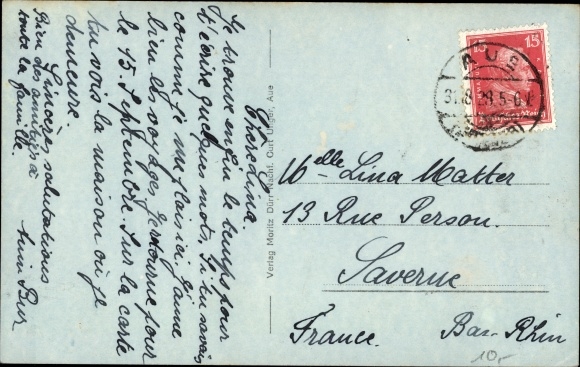 Chère Lina.
Je trouve enfin le temps pour
t'écrire quelques mots. Si tu savais
comme je me plais ici j'aime
bien les voyages. Je retourne pour
le 15. Septembre. Sur la carte
tu vois la maison où je
demeure.
Sincères salutations
Bien des amitiés à
toute la famille.
Verlag Moritz Dürr Nachf. Curt Unger, Aue
15 15
AUE
31.8.28.5-6
Melle Lina Matter
13 Rue Person.
Saverne
France. Bas-Rhin
10,-